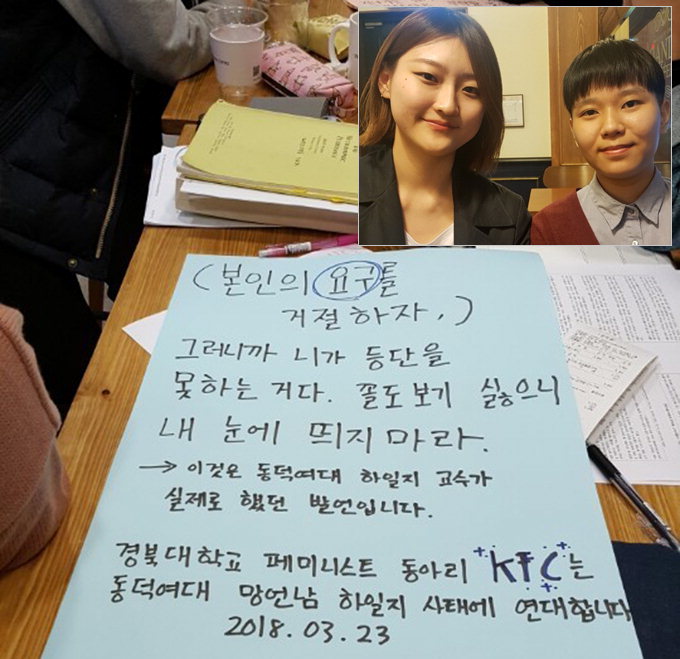 (본인의 요구를
거절하자,)
그러니까 니가 등단을
못하는 거다. 꼴도보기 싫으니
내 눈에 띄지마라.
→ 이것은 동덕여대 하일지 교수가
실제로 했던 발언입니다.
경북대학교 페미니스트 동아리 KFC는
동덕여대 망언남 하일지 사태에 연대합니다
2018.03.23